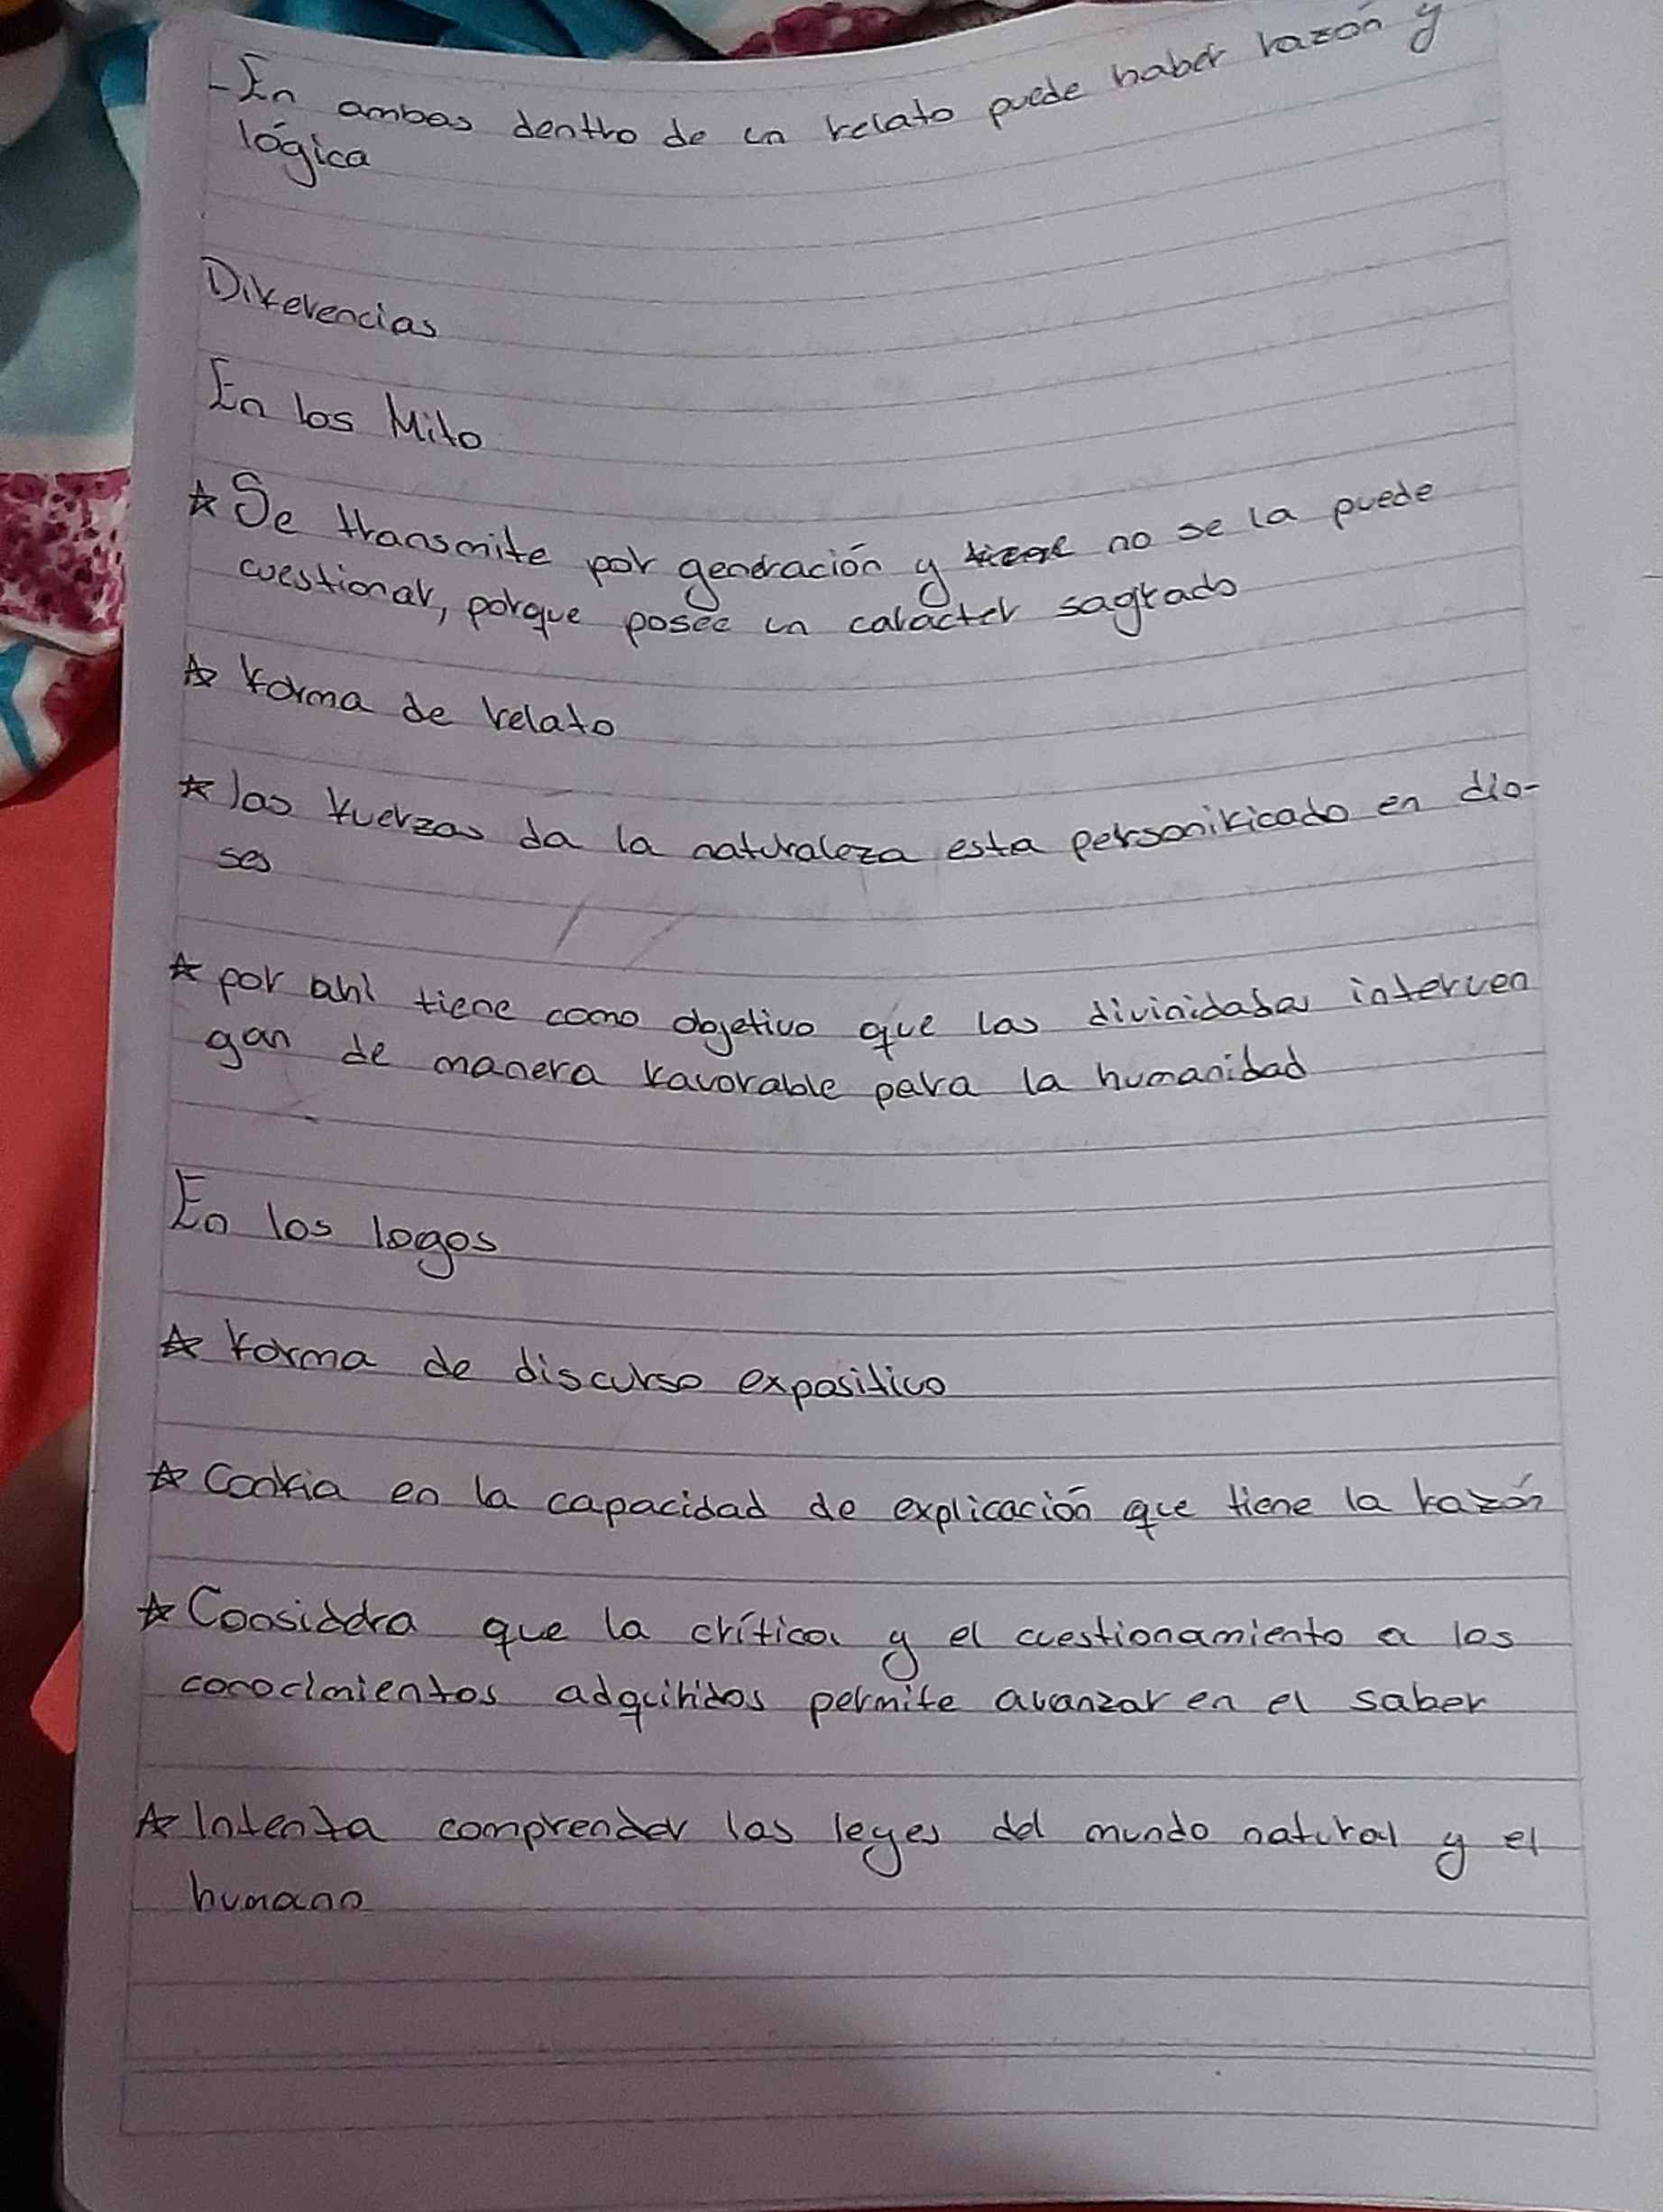 - En ambas dentro de un relato puede haber razón y
lógica
Diferencias
En los Mito
☆ Se transmite por generación y no se la puede
cuestionar, porque posee un carácter sagrado
☆ forma de relato
☆ las fuerzas da la naturaleza esta personificado en dio-
ses
☆ por ahí tiene como objetivo que las divinidades interven
gan de manera favorable para la humanidad
En los logos
☆ forma de discurso expositivo
☆ Confia en la capacidad de explicación que tiene la razón
☆ Considera que la crítica y el cuestionamiento a los
conocimientos adquiridos permite avanzar en el saber
☆ Intenta comprender las leyes del mundo natural y el
humano